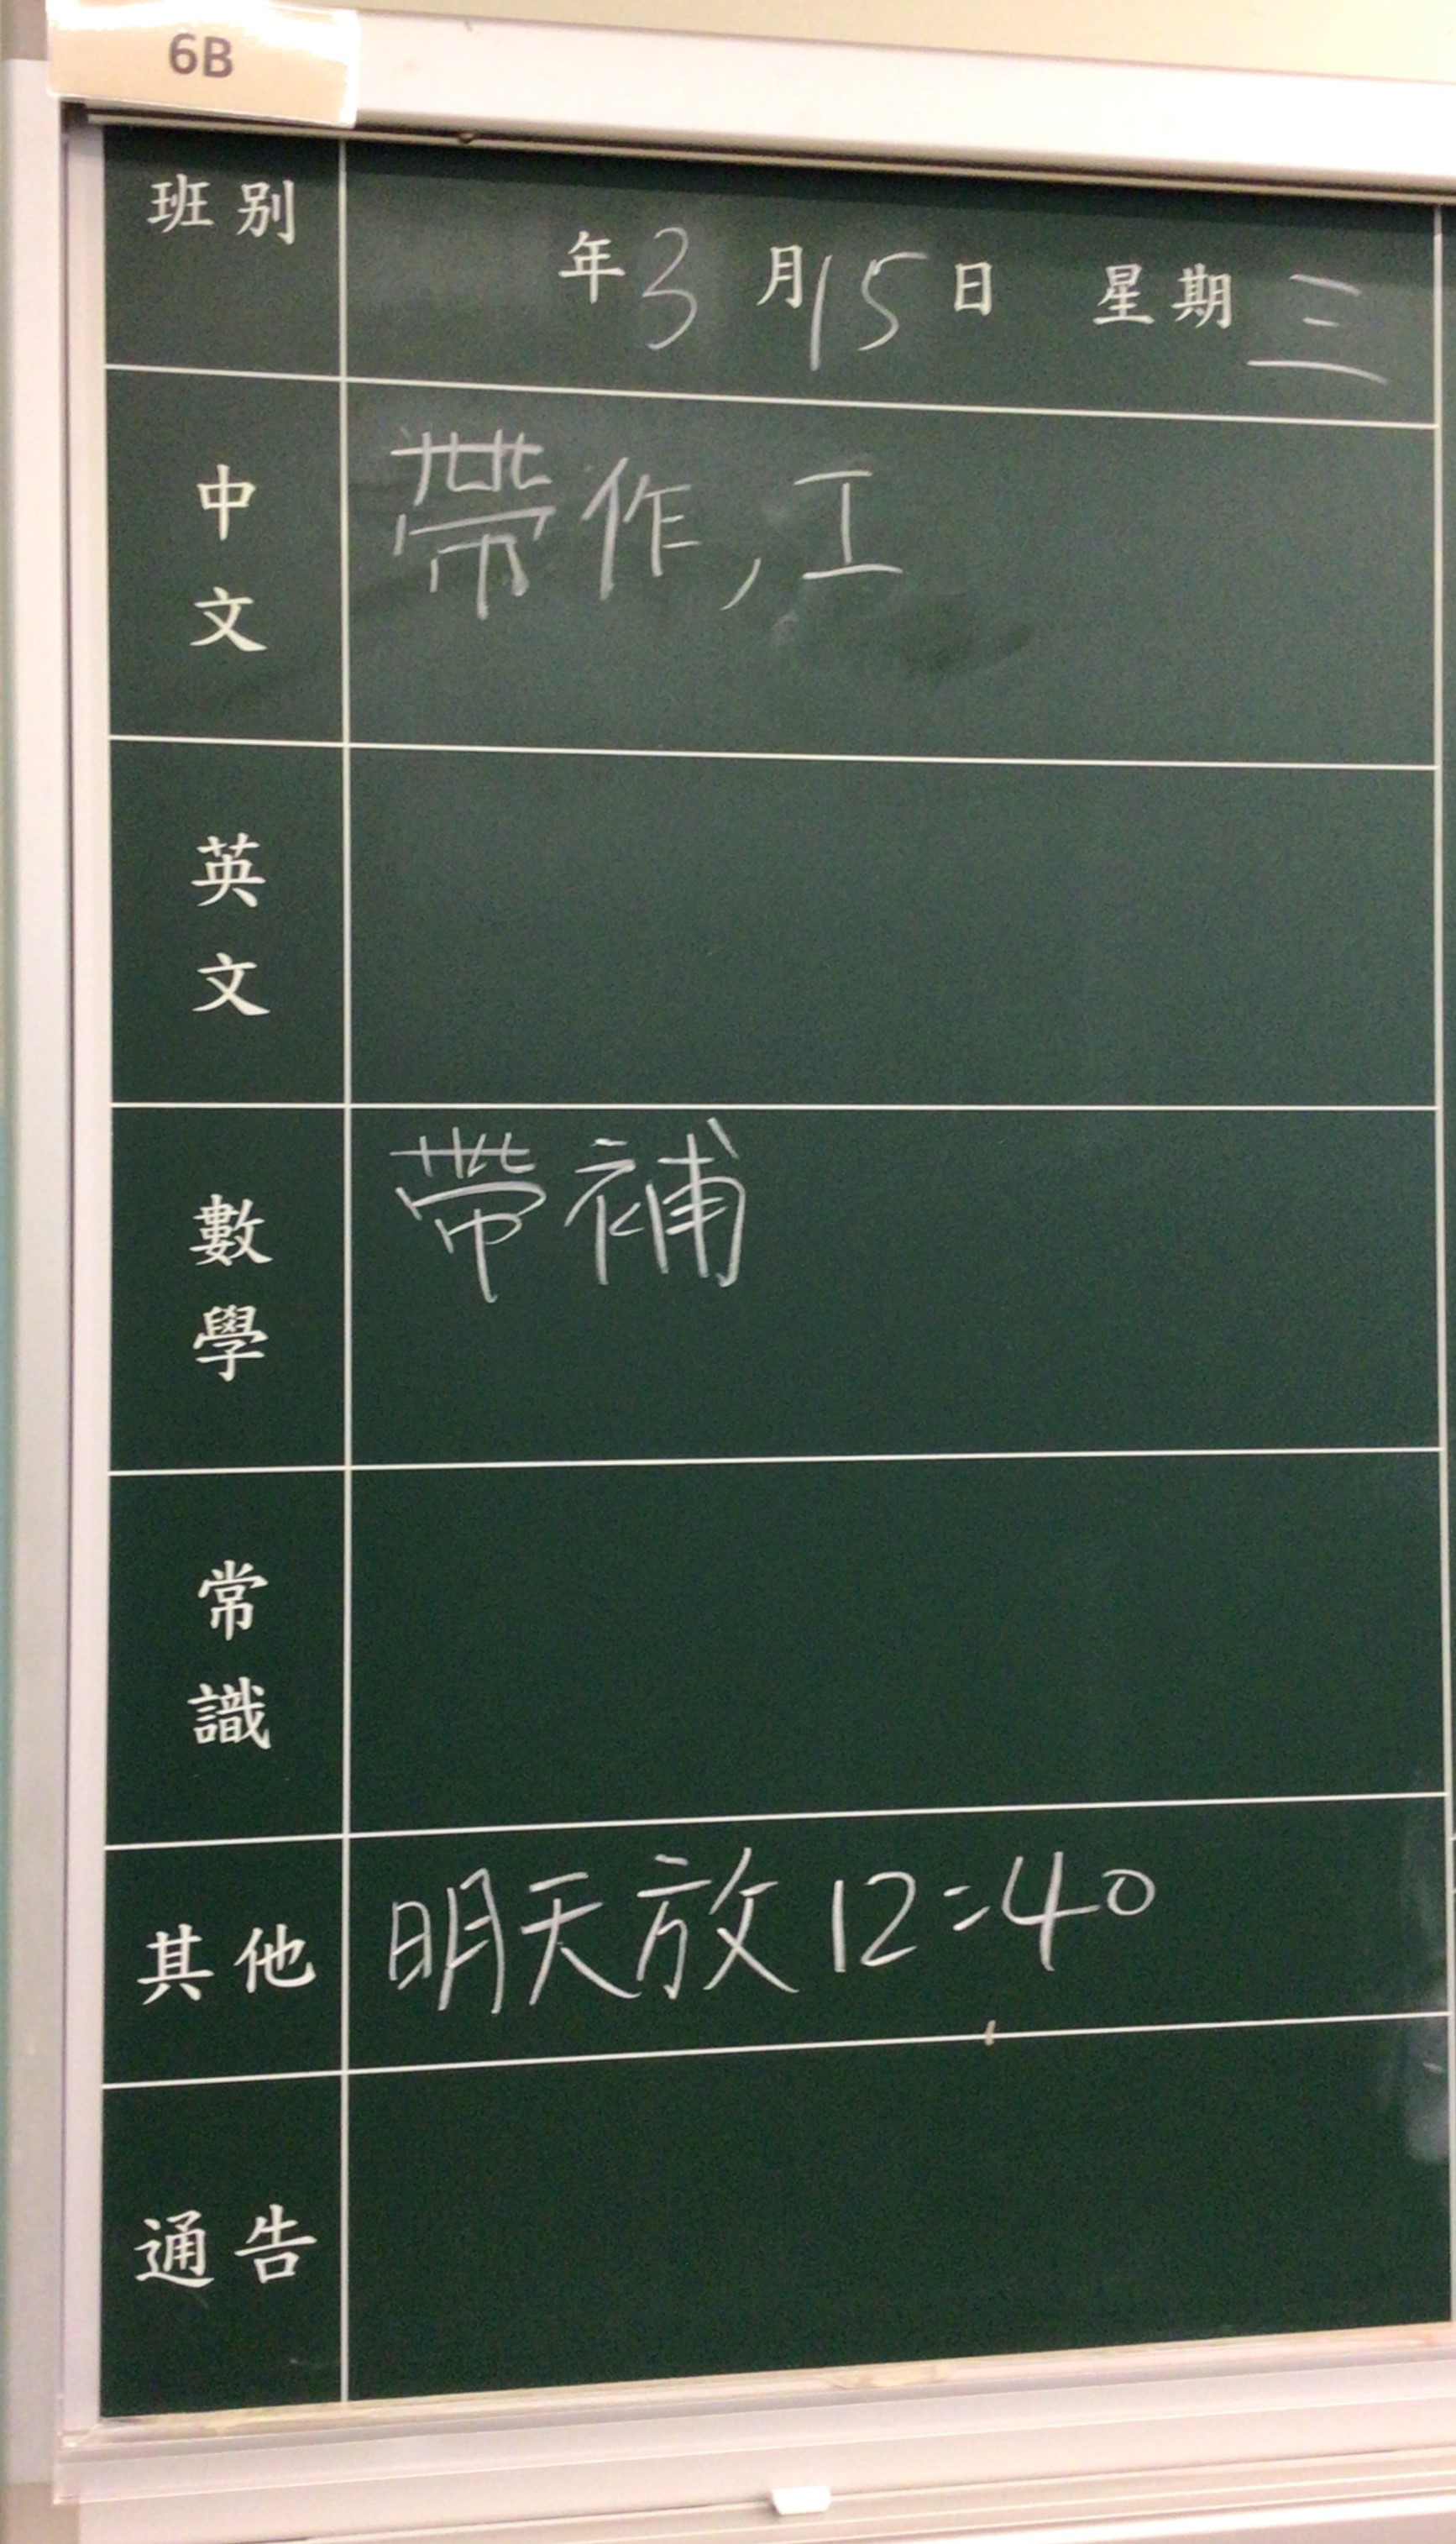 6B
班別
年3月15日 星期三
中文
帶作,工
英文
數學
帶補
常識
其他
明天放12:40
通告